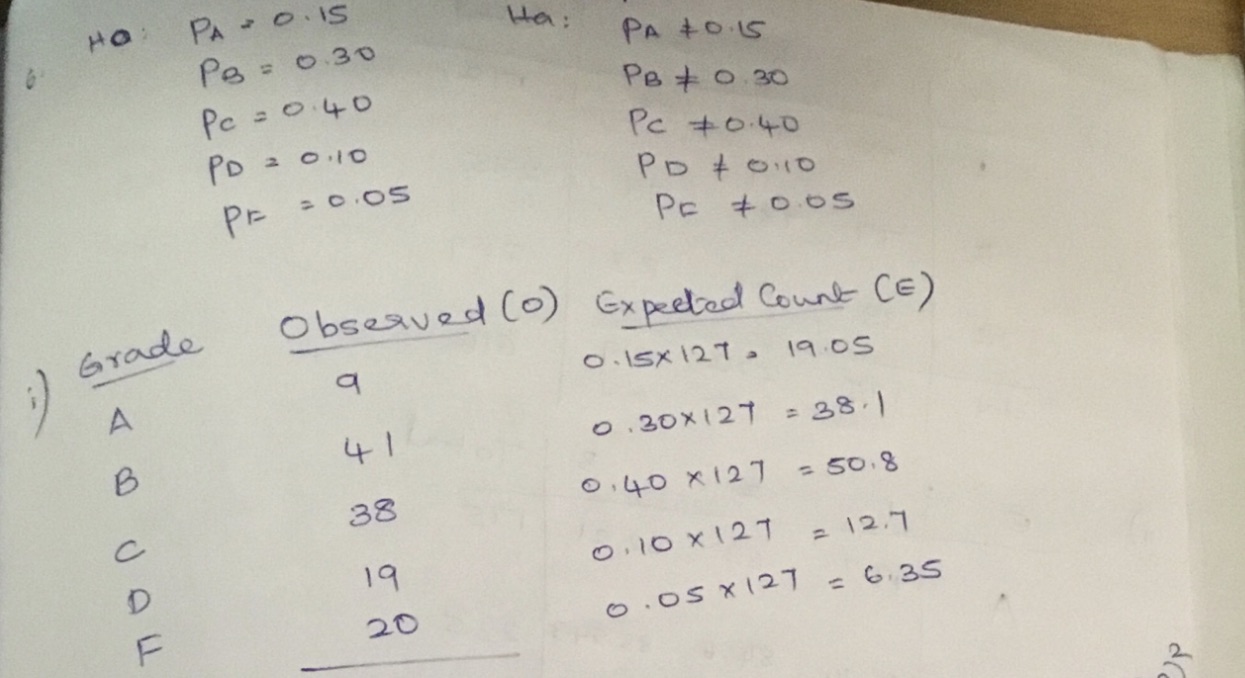 HO: PA = 0.15 Ha: PA ≠ 0.15
6. PB = 0.30 PB ≠ 0.30
PC = 0.40 PC ≠ 0.40
PD = 0.10 PD ≠ 0.10
PF = 0.05 PF ≠ 0.05
i) Grade Observed (O) Expected Count (E)
A 9 0.15 × 127 = 19.05
B 41 0.30 × 127 = 38.1
C 38 0.40 × 127 = 50.8
D 19 0.10 × 127 = 12.7
F 20 0.05 × 127 = 6.35
)2